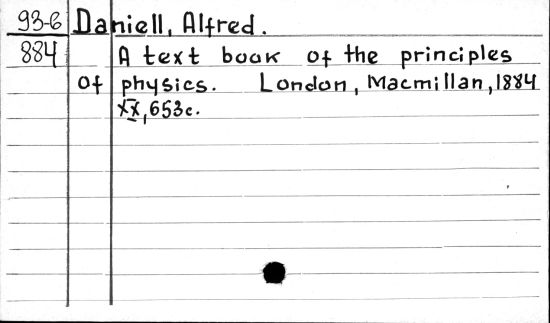 93-6 Daniell, Alfred.
884 A text book of the principles
of physics. London, Macmillan, 1884
XX, 653c.